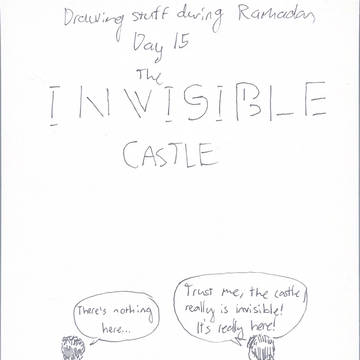 Drawing stuff during Ramadan
Day 15
The
INVISIBLE
CASTLE
There's nothing
here...
Trust me, the castle
really is invisible!
It's really here!